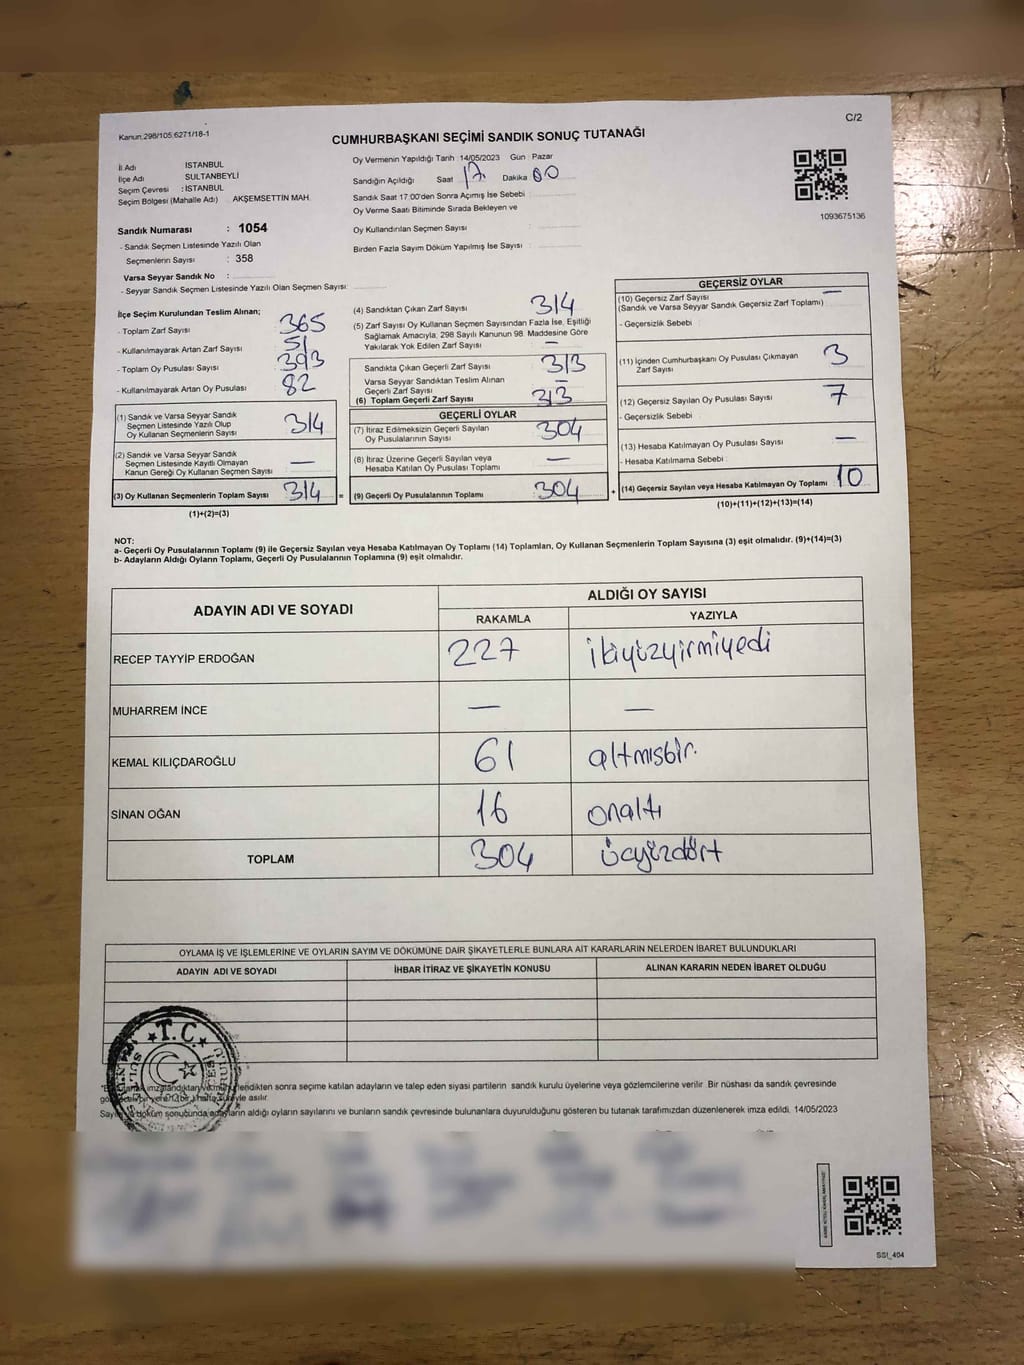 C/2
Kanun:298/105,6271/18-1
CUMHURBAŞKANI SEÇİMİ SANDIK SONUÇ TUTANAĞI
İl Adı İSTANBUL
İlçe Adı SULTANBEYLİ
Seçim Çevresi : İSTANBUL
Seçim Bölgesi (Mahalle Adı) AKŞEMSETTİN MAH.
Oy Vermenin Yapıldığı Tarih :14/05/2023 Gün : Pazar
Sandığın Açıldığı Saat 17 Dakika 00
Sandık Saat 17:00'den Sonra Açımış İse Sebebi
Oy Verme Saati Bitiminde Sırada Bekleyen ve
Oy Kullandırılan Seçmen Sayısı :
Birden Fazla Sayım Döküm Yapılmış İse Sayısı :
1093675136
Sandık Numarası : 1054
- Sandık Seçmen Listesinde Yazılı Olan
Seçmenlerin Sayısı : 358
Varsa Seyyar Sandık No :
- Seyyar Sandık Seçmen Listesinde Yazılı Olan Seçmen Sayısı:
İlçe Seçim Kurulundan Teslim Alınan;
- Toplam Zarf Sayısı 365
- Kullanılmayarak Artan Zarf Sayısı 51
- Toplam Oy Pusulası Sayısı 393
- Kullanılmayarak Artan Oy Pusulası 82
(1) Sandık ve Varsa Seyyar Sandık
Seçmen Listesinde Yazılı Olup
Oy Kullanan Seçmenlerin Sayısı 314
(2) Sandık ve Varsa Seyyar Sandık
Seçmen Listesinde Kayıtlı Olmayan
Kanun Gereği Oy Kullanan Seçmen Sayısı —
(3) Oy Kullanan Seçmenlerin Toplam Sayısı 314 =
(1)+(2)=(3)
(4) Sandıktan Çıkan Zarf Sayısı 314
(5) Zarf Sayısı Oy Kullanan Seçmen Sayısından Fazla İse, Eşitliği
Sağlamak Amacıyla, 298 Sayılı Kanunun 98. Maddesine Göre
Yakılarak Yok Edilen Zarf Sayısı —
Sandıkta Çıkan Geçerli Zarf Sayısı 313
Varsa Seyyar Sandıktan Teslim Alınan
Geçerli Zarf Sayısı —
(6) Toplam Geçerli Zarf Sayısı 313
GEÇERLİ OYLAR
(7) İtiraz Edilmeksizin Geçerli Sayılan
Oy Pusulalarının Sayısı 304
(8) İtiraz Üzerine Geçerli Sayılan veya
Hesaba Katılan Oy Pusulası Toplamı —
(9) Geçerli Oy Pusulalarının Toplamı 304 +
GEÇERSİZ OYLAR
(10) Geçersiz Zarf Sayısı —
(Sandık ve Varsa Seyyar Sandık Geçersiz Zarf Toplamı)
- Geçersizlik Sebebi :
(11) İçinden Cumhurbaşkanı Oy Pusulası Çıkmayan
Zarf Sayısı 3
(12) Geçersiz Sayılan Oy Pusulası Sayısı 7
- Geçersizlik Sebebi :
(13) Hesaba Katılmayan Oy Pusulası Sayısı —
- Hesaba Katılmama Sebebi :
(14) Geçersiz Sayılan veya Hesaba Katılmayan Oy Toplamı 10
(10)+(11)+(12)+(13)=(14)
NOT:
a- Geçerli Oy Pusulalarının Toplamı (9) ile Geçersiz Sayılan veya Hesaba Katılmayan Oy Toplamı (14) Toplamları, Oy Kullanan Seçmenlerin Toplam Sayısına (3) eşit olmalıdır. (9)+(14)=(3)
b- Adayların Aldığı Oyların Toplamı, Geçerli Oy Pusulalarının Toplamına (9) eşit olmalıdır.
ADAYIN ADI VE SOYADI ALDIĞI OY SAYISI
RAKAMLA YAZIYLA
RECEP TAYYİP ERDOĞAN 227 ikiyüzyirmiyedi
MUHARREM İNCE — —
KEMAL KILIÇDAROĞLU 61 altmışbir.
SİNAN OĞAN 16 onaltı
TOPLAM 304 üçyüzdört
OYLAMA İŞ VE İŞLEMLERİNE VE OYLARIN SAYIM VE DÖKÜMÜNE DAİR ŞİKAYETLERLE BUNLARA AİT KARARLARIN NELERDEN İBARET BULUNDUKLARI
ADAYIN ADI VE SOYADI İHBAR İTİRAZ VE ŞİKAYETİN KONUSU ALINAN KARARIN NEDEN İBARET OLDUĞU
T.C.
sonra seçime katılan adayların ve talep eden siyasi partilerin sandık kurulu üyelerine veya gözlemcilerine verilir. Bir nüshası da sandık çevresinde
asılır.
sonucunda adayların aldığı oyların sayılarını ve bunların sandık çevresinde bulunanlara duyurulduğunu gösteren bu tutanak tarafımızdan düzenlenerek imza edildi. 14/05/2023
SSI_404